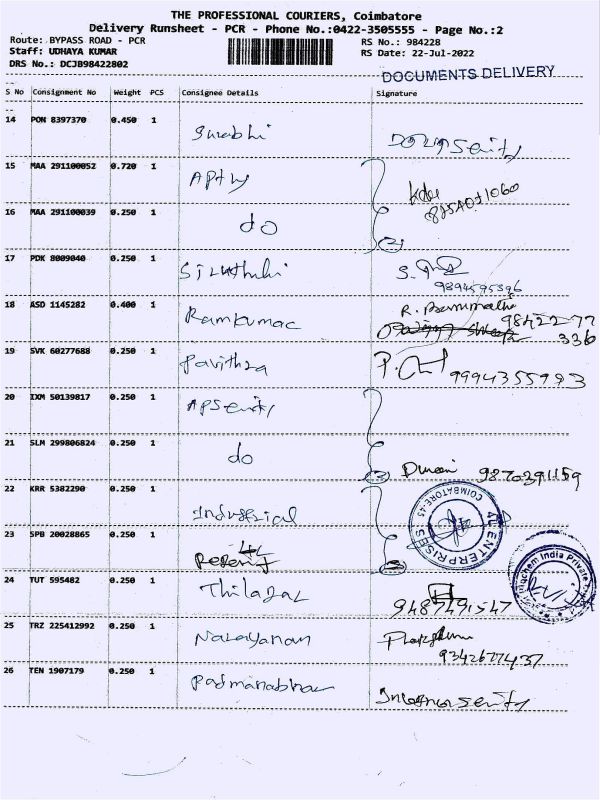 THE PROFESSIONAL COURIERS, Coimbatore
Delivery Runsheet - PCR - Phone No.:0422-3505555 - Page No.:2
Route: BYPASS ROAD - PCR RS No.: 984228
Staff: UDHAYA KUMAR RS Date: 22-Jul-2022
DRS No.: DCJB98422802
DOCUMENTS DELIVERY
S No Consignment No Weight PCS Consignee Details Signature
14 PON 8397370 0.450 1 Surabhi
15 MAA 291100052 0.720 1
16 MAA 291100039 0.250 1 do
17 PDK 8009040 0.250 1
9894595396
18 ASD 1145282 0.400 1 Ramkumar
98422 77
336
19 SVK 60277688 0.250 1 Pavithra 9994355993
20 IXM 50139817 0.250 1
21 SLM 299806824 0.250 1 do 9870391159
22 KRR 5382290 0.250 1 Industrial
COIMBATORE-45
4L ENTERPRISES
23 SPB 20028865 0.250 1
24 TUT 595482 0.250 1 Thilagar 9487491547
25 TRZ 225412992 0.250 1 Narayanan
9342677437
26 TEN 1907179 0.250 1 Padmanabhan